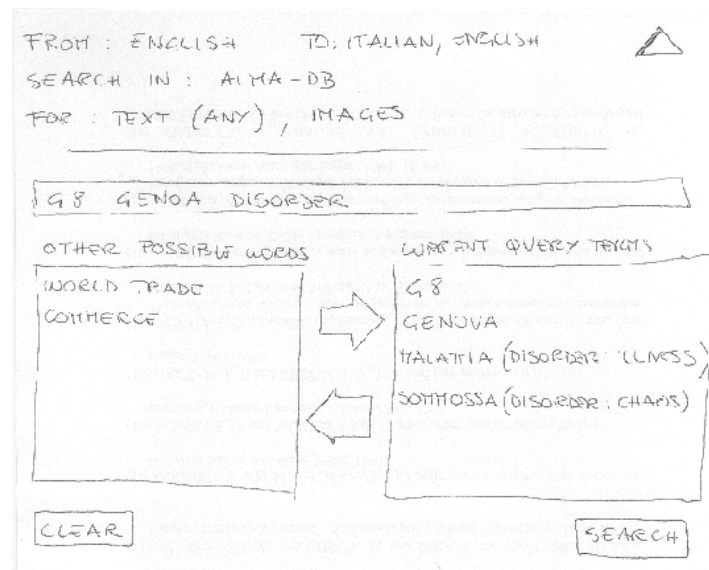 FROM : ENGLISH TO: ITALIAN, ENGLISH
SEARCH IN : ALMA-DB
FOR : TEXT (ANY) / IMAGES
G8 GENOA DISORDER
OTHER POSSIBLE WORDS
WORLD TRADE
COMMERCE
CURRENT QUERY TERMS
G8
GENOVA
MALATTIA (DISORDER: ILLNESS)
SOMMOSSA (DISORDER: CHAOS)
CLEAR
SEARCH